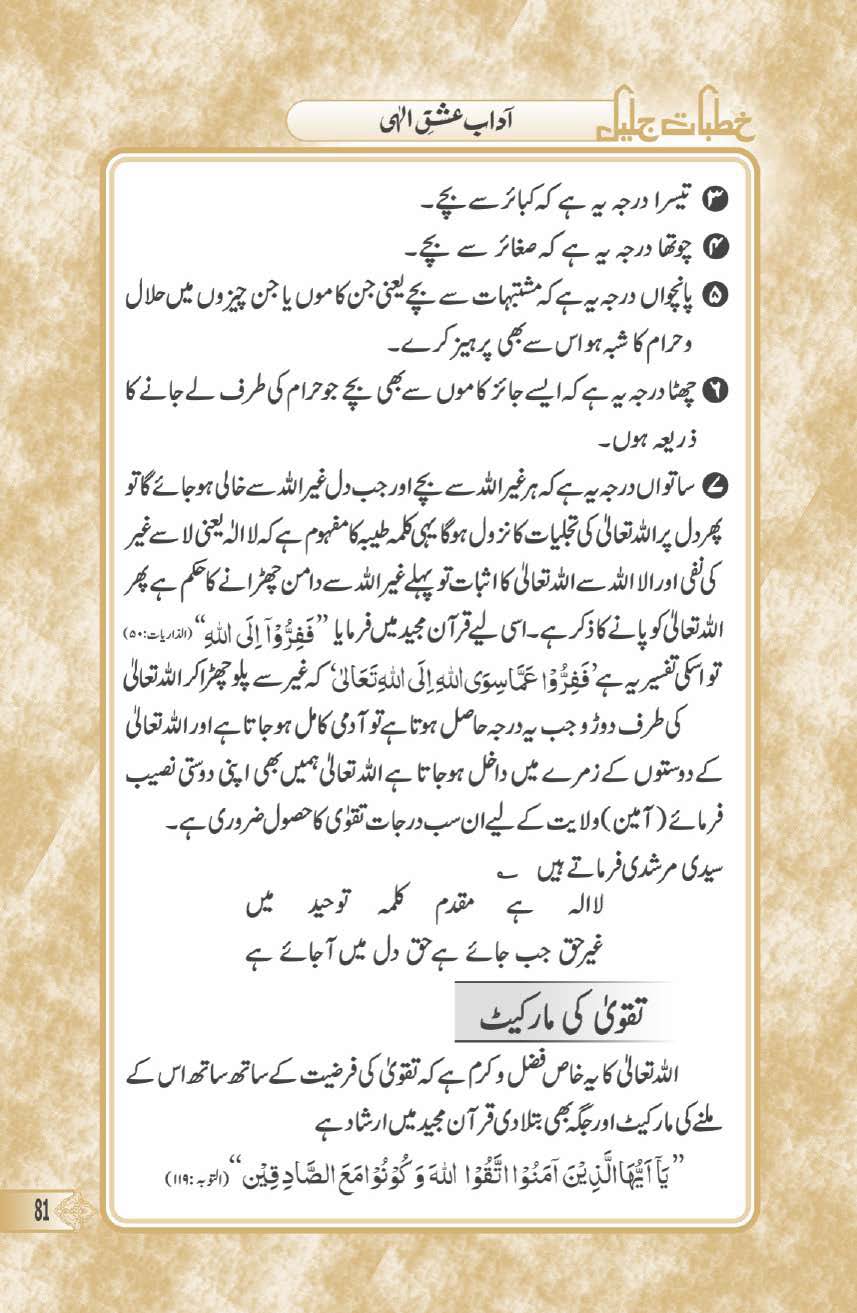 خطبات جلیل
آداب عشقِ الٰہی
۳ تیسرا درجہ یہ ہے کہ کبائر سے بچے۔
۴ چوتھا درجہ یہ ہے کہ صغائر سے بچے۔
۵ پانچواں درجہ یہ ہے کہ مشتبہات سے بچے یعنی جن کاموں یا جن چیزوں میں حلال
وحرام کا شبہ ہو اس سے بھی پرہیز کرے۔
۶ چھٹا درجہ یہ ہے کہ ایسے جائز کاموں سے بھی بچے جو حرام کی طرف لے جانے کا
ذریعہ ہوں۔
۷ ساتواں درجہ یہ ہے کہ ہر غیر اللہ سے بچے اور جب دل غیر اللہ سے خالی ہو جائے گا تو
پھر دل پر اللہ تعالیٰ کی تجلیات کا نزول ہوگا یہی کلمہ طیبہ کا مفہوم ہے کہ لا الٰہ یعنی لا سے غیر
کی نفی اور الا اللہ سے اللہ تعالیٰ کا اثبات تو پہلے غیر اللہ سے دامن چھڑانے کا حکم ہے پھر
اللہ تعالیٰ کو پانے کا ذکر ہے۔ اسی لیے قرآن مجید میں فرمایا ”فَفِرُّوْآ اِلَی اللہِ“ (الذاریات:۵۰)
تو اسکی تفسیر یہ ہے ’فَفِرُّوْا عَمَّا سِوَی اللہِ اِلَی اللہِ تَعَالیٰ‘ کہ غیر سے پلو چھڑا کر اللہ تعالیٰ
کی طرف دوڑو جب یہ درجہ حاصل ہوتا ہے تو آدمی کامل ہو جاتا ہے اور اللہ تعالیٰ
کے دوستوں کے زمرے میں داخل ہو جاتا ہے اللہ تعالیٰ ہمیں بھی اپنی دوستی نصیب
فرمائے (آمین) ولایت کے لیے ان سب درجات تقوٰی کا حصول ضروری ہے۔
سیدی مرشدی فرماتے ہیں ؎
لاالہ ہے مقدم کلمہ توحید میں
غیر حق جب جائے ہے حق دل میں آجائے ہے
تقویٰ کی مارکیٹ
اللہ تعالیٰ کا یہ خاص فضل و کرم ہے کہ تقویٰ کی فرضیت کے ساتھ ساتھ اس کے
ملنے کی مارکیٹ اور جگہ بھی بتلا دی قرآن مجید میں ارشاد ہے
”یَآ اَیُّهَا الَّذِیْنَ آمَنُوْا اتَّقُوْا اللہَ وَ کُوْنُوْا مَعَ الصَّادِقِیْن“ (التوبہ:۱۱۹)
81